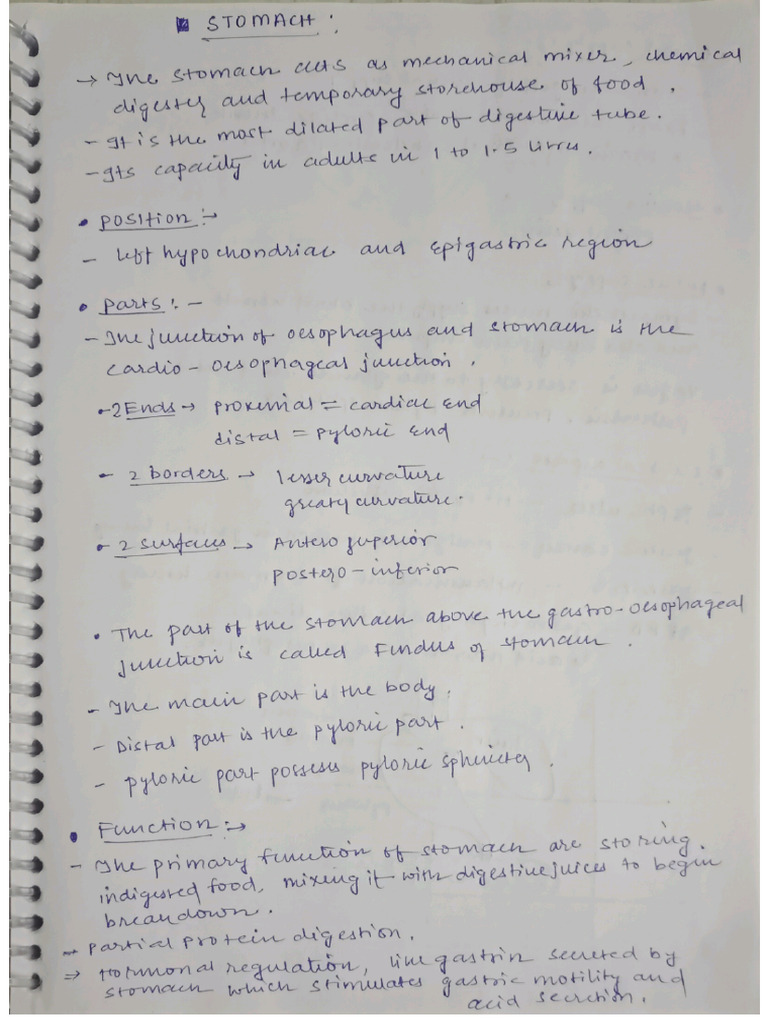 STOMACH :
→ The stomach acts as mechanical mixer, chemical
digester and temporary storehouse of food .
- It is the most dilated part of digestive tube .
- Its capacity in adults in 1 to 1.5 litres .
• Position :-
- left hypochondriac and epigastric region
• Parts : -
- The junction of oesophagus and stomach is the
cardio - oesophageal junction .
- 2 Ends → proximal = cardiac end
distal = pyloric end
- 2 borders → lesser curvature
greater curvature .
- 2 surfaces → Antero superior
postero - inferior
• The part of the stomach above the gastro - oesophageal
junction is called Fundus of stomach .
- The main part is the body .
- Distal part is the pyloric part .
- pyloric part possesses pyloric sphincter .
• Function :→
- The primary function of stomach are storing .
indigested food, mixing it with digestive juices to begin
breakdown .
→ partial protein digestion .
⇒ Hormonal regulation, like gastrin secreted by
stomach which stimulates gastric motility and
acid secretion .